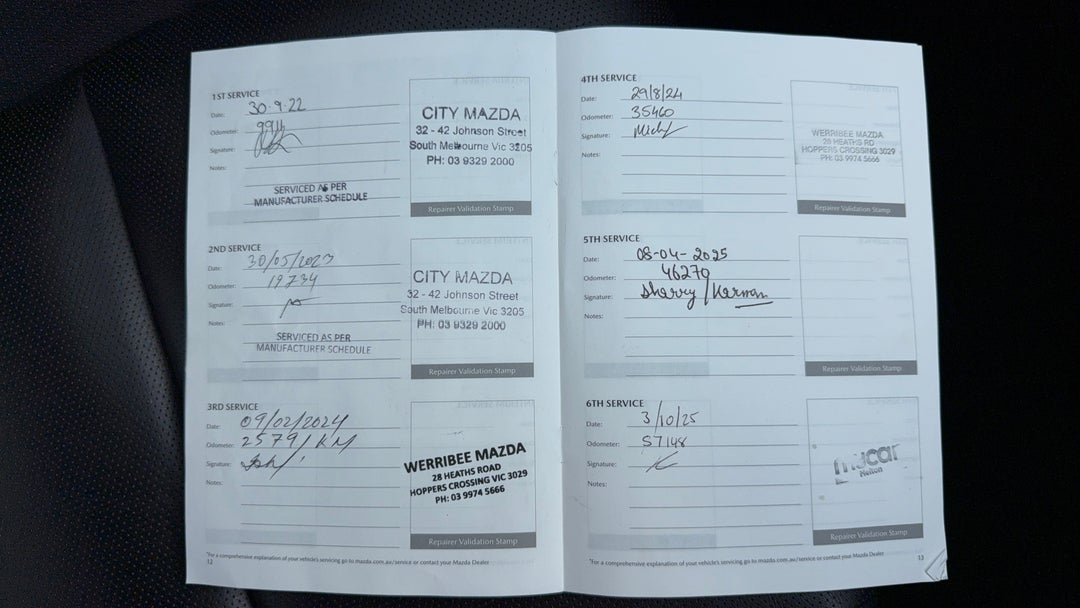 1ST SERVICE
Date: 30.9.22
Odometer: 9911
Signature:
Notes:
SERVICED AS PER
MANUFACTURER SCHEDULE
CITY MAZDA
32 - 42 Johnson Street
South Melbourne Vic 3205
PH: 03 9329 2000
Repairer Validation Stamp
2ND SERVICE
Date: 30/05/2023
Odometer: 19734
Signature:
Notes:
SERVICED AS PER
MANUFACTURER SCHEDULE
CITY MAZDA
32 - 42 Johnson Street
South Melbourne Vic 3205
PH: 03 9329 2000
Repairer Validation Stamp
3RD SERVICE
Date: 09/02/2024
Odometer: 25791 KM
Signature:
Notes:
WERRIBEE MAZDA
28 HEATHS ROAD
HOPPERS CROSSING VIC 3029
PH: 03 9974 5666
Repairer Validation Stamp
*For a comprehensive explanation of your vehicle's servicing go to mazda.com.au/service or contact your Mazda Dealer
12
4TH SERVICE
Date: 29/8/24
Odometer: 35460
Signature:
Notes:
WERRIBEE MAZDA
28 HEATHS RD
HOPPERS CROSSING 3029
PH: 03 9974 5666
Repairer Validation Stamp
5TH SERVICE
Date: 08-04-2025
Odometer: 46279
Signature: Sharry / Karman
Notes:
Repairer Validation Stamp
6TH SERVICE
Date: 3/10/25
Odometer: 57148
Signature:
Notes:
mycar
Melton
Repairer Validation Stamp
*For a comprehensive explanation of your vehicle's servicing go to mazda.com.au/service or contact your Mazda Dealer
13